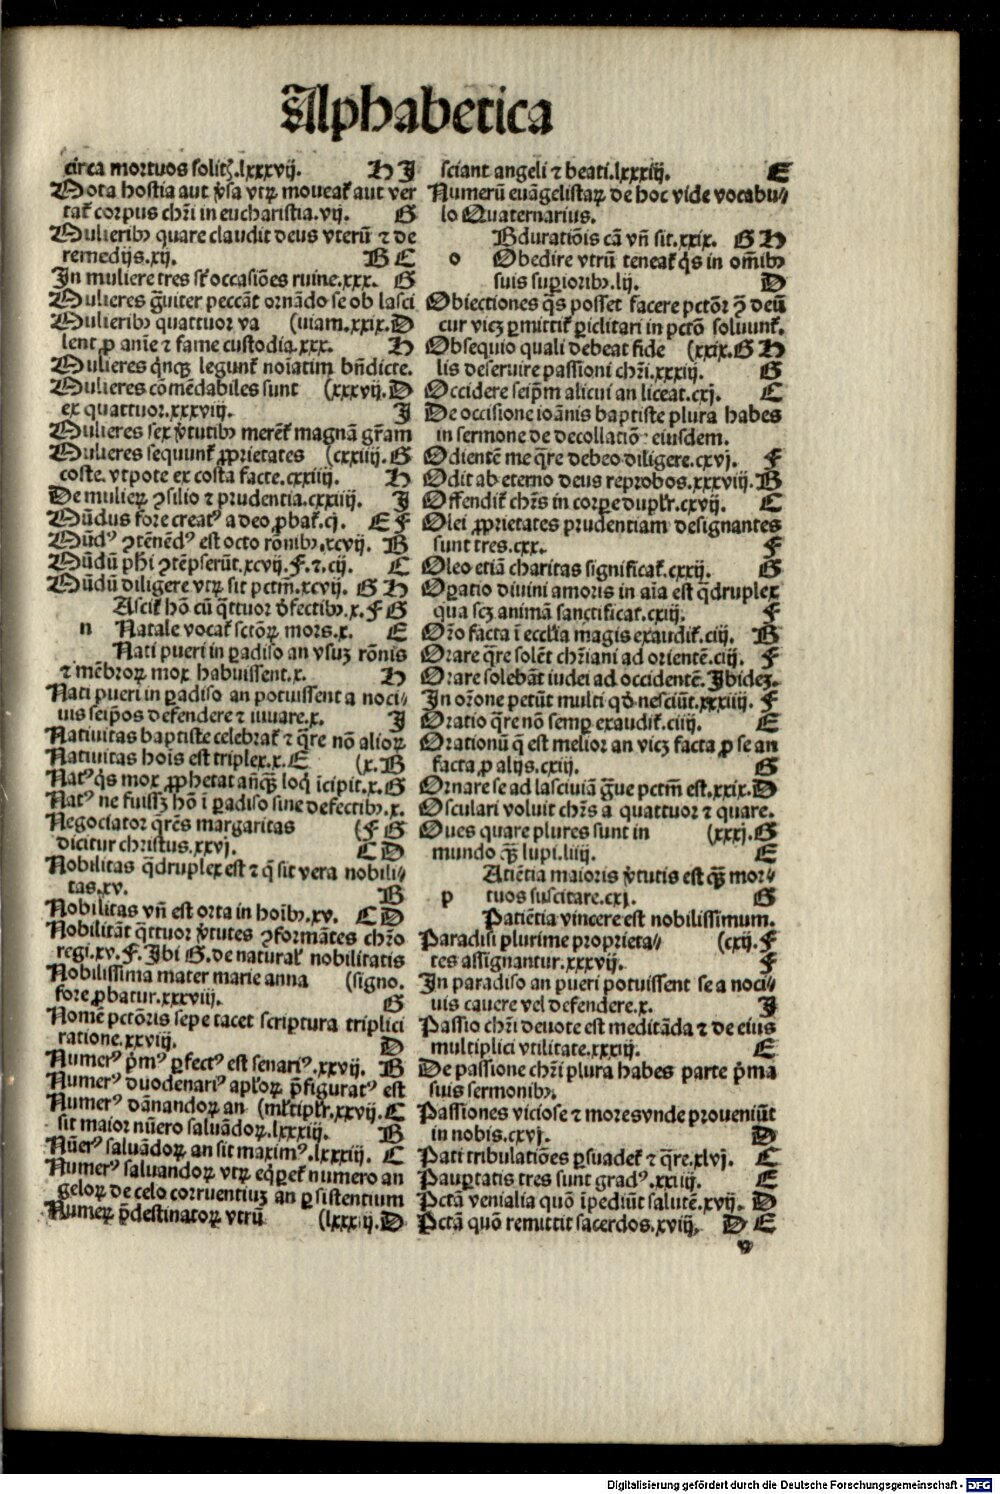 Alphabetica
circa mortuos solitꝭ.lxxxvij. H J
Mota hostia aut v̾sa vtꝝ moueat᷑ aut ver
tat᷑ corpus chr̄i in eucharistia.vij. G
Mulierib⁹ quare claudit deus vterū ⁊ de
remedijs.xij. B C
In muliere tres st᷑ occasiōes ruine.xxx. G
Mulieres gͣuiter peccāt ornādo se ob lasci
Mulierib⁹ quattuor va (uiam.xxix.D
lent ꝓ anīe ⁊ fame custodia.xxx. H
Mulieres qͥncꝫ legunt᷑ noīatim bn̄dicte.
Mulieres cōmēdabiles sunt (xxxvij.D
ex quattuor.xxxviij. J
Mulieres sex v̾tutib⁹ merēt᷑ magnā gr̄am
Mulieres sequunt᷑ ꝓprietates (cxxiiij.G
coste. vtpote ex costa facte.cxxiiij. H
De mulieꝝ ꝯsilio ⁊ prudentia.cxxiiij. J
Mūdus fore creatꝰ a deo ꝓbat᷑.cj. E F
Mūdꝰ ꝯtēnēdꝰ est octo rōnib⁹.xcvij. B
Mūdū ph̄i ꝯtēpserūt.xcvij.F.⁊.cij. C
Mūdū diligere vtꝝ sit pctm̄.xcvij. G H
Ascit᷑ hō cū qͣttuor d̾fectib⁹.x. F G
n Natale vocat᷑ sctōꝝ mors.x. E
Nati pueri in ꝑadiso an vsuꝫ rōnis
⁊ mēbroꝝ mox habuissent.x. H
Nati pueri in ꝑadiso an potuissent a noci⸗
uis seip̄os defendere ⁊ iuuare.x. J
Natiuitas baptiste celebrat᷑ ⁊ qͣre nō alioꝝ
Natiuitas hoīs est triplex.x.E (x.B
Natꝰ qͥs mox ꝓphetat anqͣꝫ loqͥ īcipit.x.G
Natꝰ ne fuissꝫ hō ī ꝑadiso sine defectib⁹.x.
Negociator qͣrēs margaritas (F G
dicitur christus.xxvj. C D
Nobilitas qͣdruplex est ⁊ q̄ sit vera nobili⸗
tas.xv. B
Nobilitas vn̄ est orta in hoīb⁹.xv. C D
Nobilitāt qͣttuor v̾tutes ꝯformātes chr̄o
regi.xv.F.Ibi G.de natural̓ nobilitatis
Nobilissima mater marie anna (signo.
fore ꝓbatur.xxxviij. G
Nomē pctōris sepe tacet scriptura triplici
ratione.xxviij. D
Numerꝰ pͥmꝰ ꝑfectꝰ est senariꝰ.xxvij. B
Numerꝰ duodenariꝰ apl̓oꝝ p̄figuratꝰ est
Numerꝰ dānandoꝝ an (ml̓tipl̓r.xxvij.C
sit maior nūero saluādoꝝ.lxxxiij. B
Nūerꝰ saluādoꝝ an sit maximꝰ.lxxxiij. C
Numerꝰ saluandoꝝ vtꝝ eqͥꝑet᷑ numero an
geloꝝ de celo corruentiuꝫ an ꝑsistentium
Numeꝝ p̄destinatoꝝ vtrū (lxxxiij.D
sciant angeli ⁊ beati.lxxxiij. E
Numerū euāgelistaꝝ de hoc vide vocabu⸗
lo Quaternarius.
Bduratiōis cā vn̄ sit.xxix. G H
o Obedire vtrū teneat᷑ qͥs in om̄ib⁹
suis suꝑiorib⁹.lij. D
Obiectiones qͣs posset facere pctōr ꝯ deū
cur vicꝫ ꝑmittit᷑ ꝑiclitari in pctō soluunt᷑.
Obsequio quali debeat fide (xxix.G H
lis deseruire passioni chr̄i.xxxiij. G
Occidere seip̄m alicui an liceat.cxj. C
De occisione ioānis baptiste plura habes
in sermone de decollatiōe eiusdem.
Odientē me qͣre debeo diligere.cxvj. F
Odit ab eterno deus reprobos.xxxviij.B
Offendit᷑ chr̄s in corꝑe dupl̓r.cxvij. C
Olei ꝓprietates prudentiam designantes
sunt tres.cxx. F
Oleo etiā charitas significat᷑.cxxij. G
Oꝑatio diuini amoris in aīa est qͣdruplex
qua scꝫ animā sanctificat.cxiij. F
Or̄o facta ī eccl̓ia magis exaudit᷑.ciij. B
Orare qͣre solēt chr̄iani ad orientē.ciij. F
Orare solebāt iudei ad occidentē.Ibideꝫ.
In or̄one petūt multi qd̾ nesciūt.xxxiiij. F
Oratio qͣre nō semꝑ exaudit᷑.ciiij. E
Orationū q̄ est melior an vicꝫ facta ꝓ se an
facta ꝓ alijs.cxiij. G
Ornare se ad lasciuiā gͣue pctm̄ est.xxix.D
Osculari voluit chr̄s a quattuor ⁊ quare.
Oues quare plures sunt in (xxxj.G
mundo qͣꝫ lupi.liiij. E
Atiētia maioris v̾tutis est qͣꝫ mor⸗
p tuos suscitare.cxj. G
Patiētia vincere est nobilissimum.
Paradisi plurime proprieta⸗ (cxij.F
tes assignantur.xxxvij. F
In paradiso an pueri potuissent se a noci⸗
uis cauere vel defendere.x. J
Passio chr̄i deuote est meditāda ⁊ de eius
multiplici vtilitate.xxxiij. E
De passione chr̄i plura habes parte pͥma
suis sermonib⁹.
Passiones viciose ⁊ mores vnde proueniūt
in nobis.cxvj. D
Pati tribulatiōes ꝑsuadet᷑ ⁊ qͣre.xlvj. C
Pauꝑtatis tres sunt gradꝰ.xxiiij. E
Pctā venialia quō īpediūt salutē.xvij. D
Pctā quō remittit sacerdos.xviij. D E
v
Digitalisierung gefördert durch die Deutsche Forschungsgemeinschaft - DFG